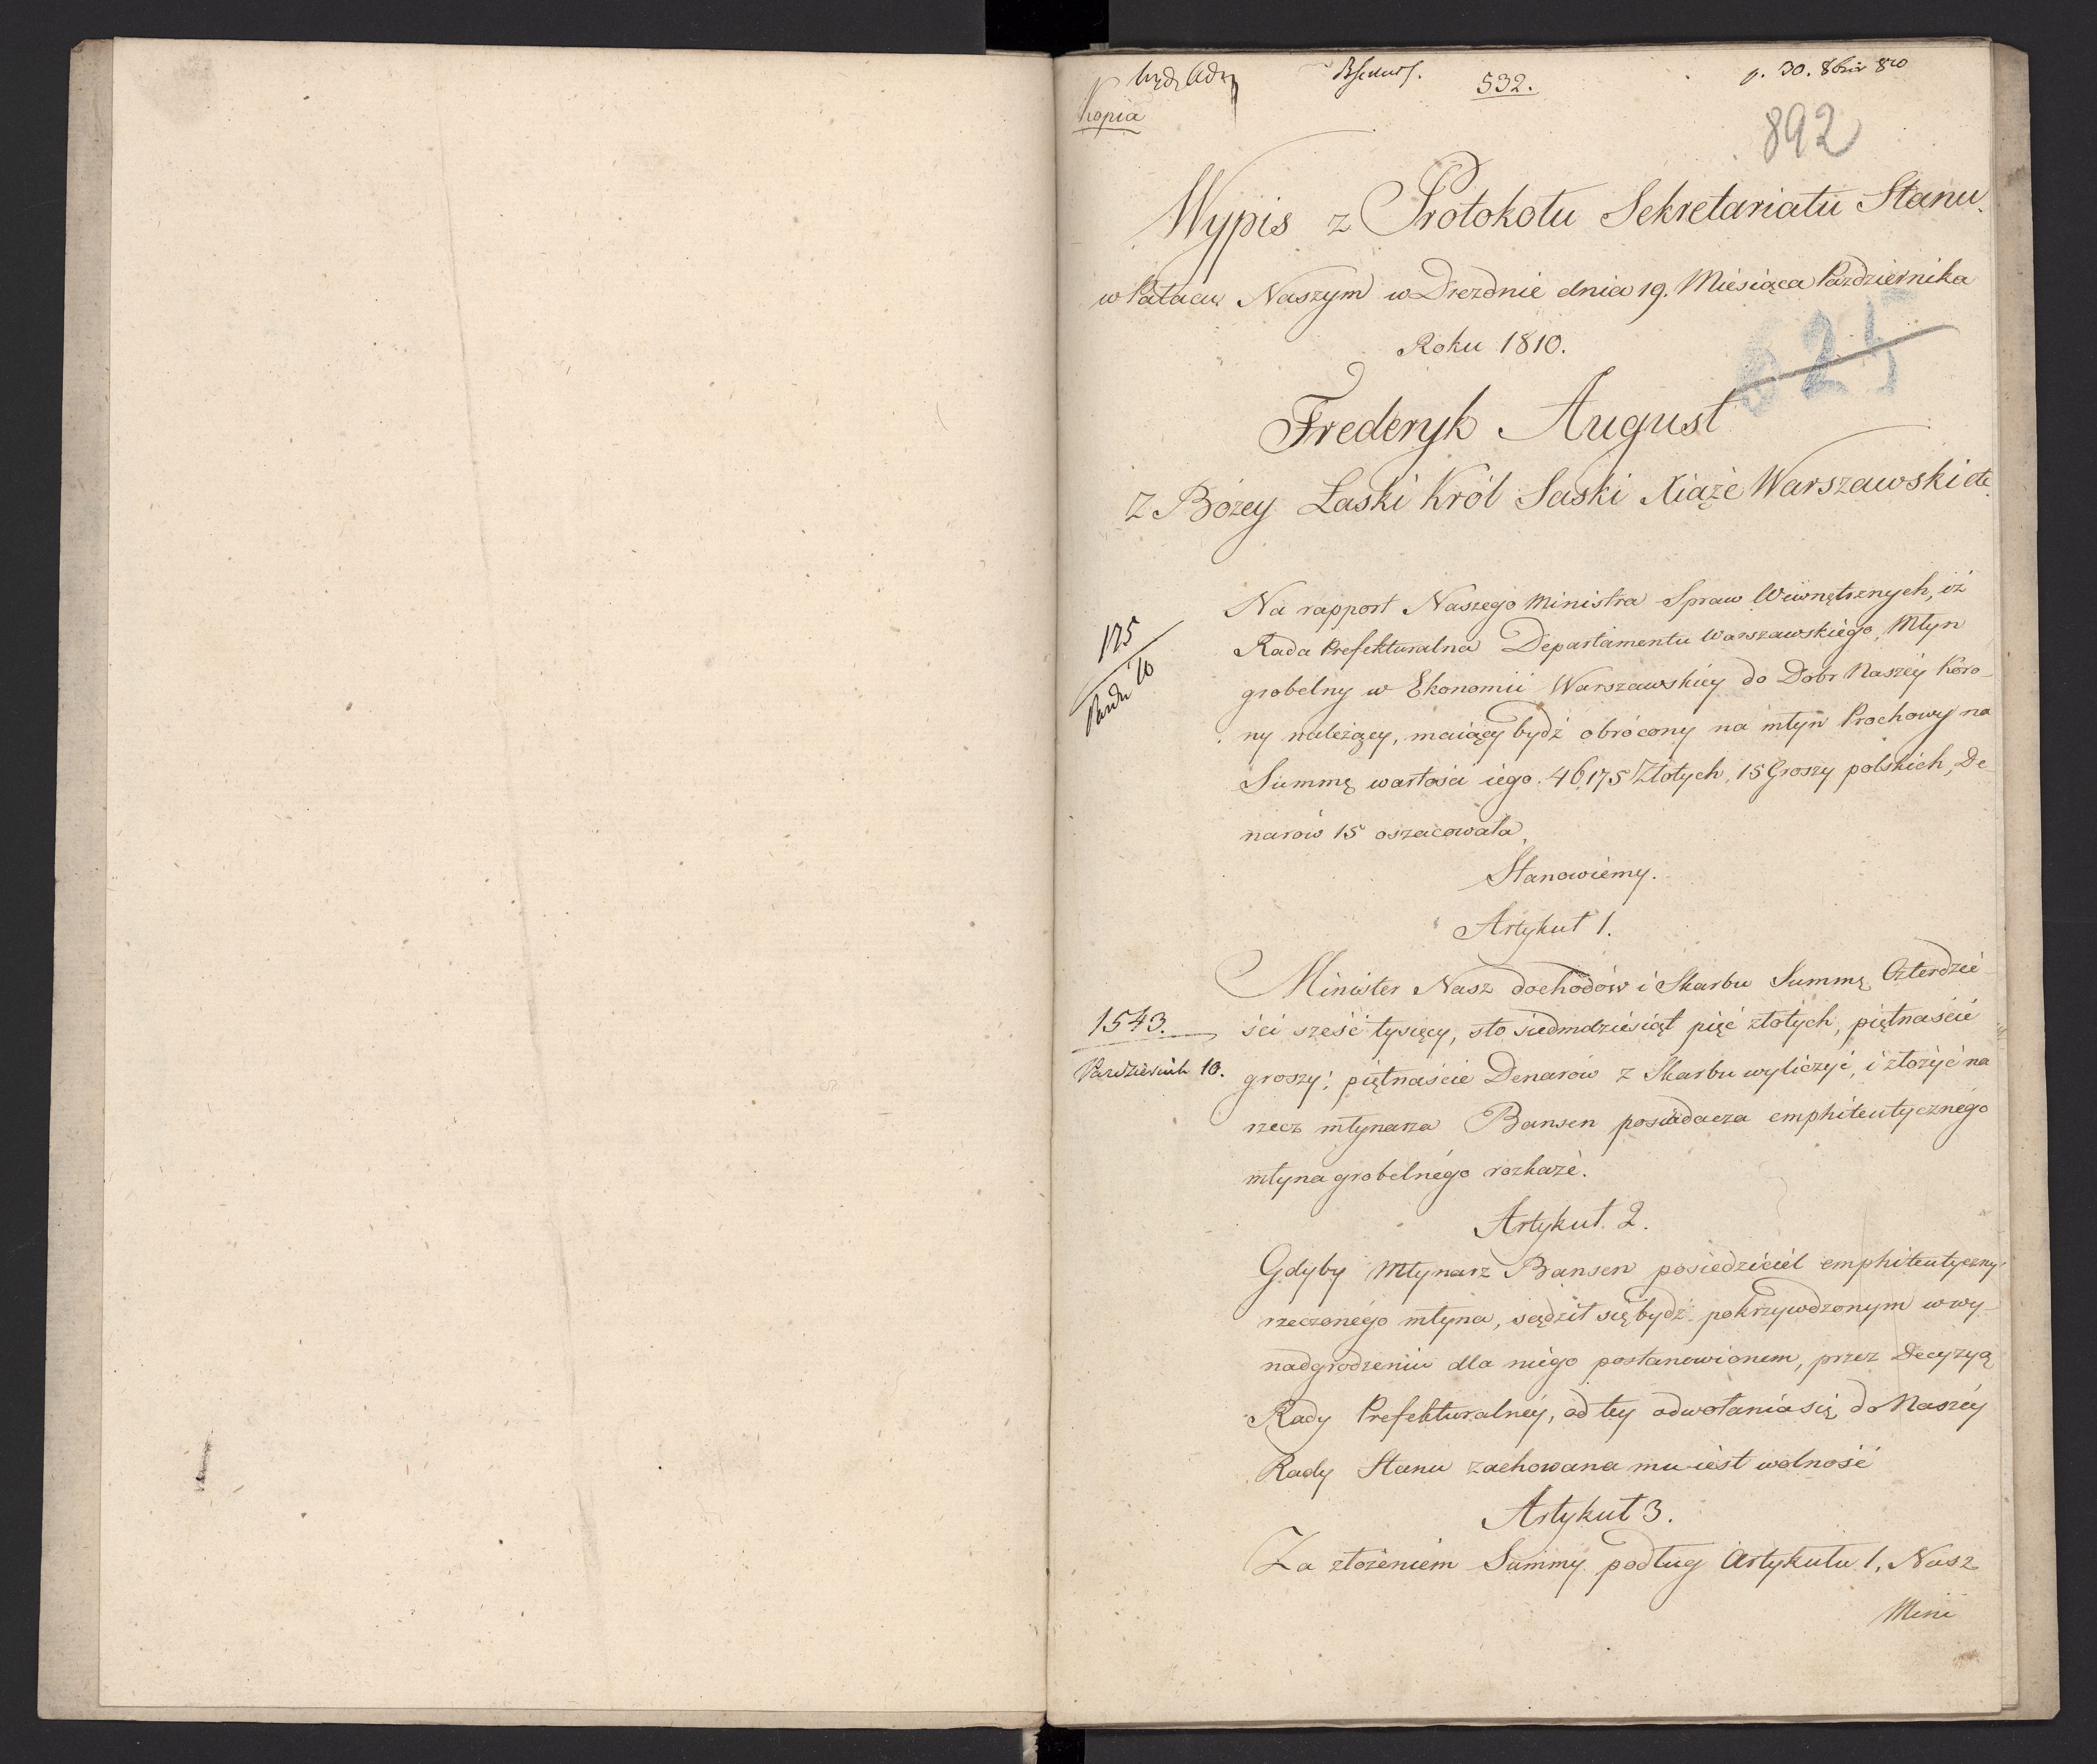 532.
p. 30. 8bris 810
Kopia
892
Wypis z Protokołu Sekretariatu Stanu
w Pałacu Naszym w Dreźnie dnia 19. Miesiąca Października
Roku 1810.
625
Frederyk August
Z Bożey Łaski Król Saski Xiąże Warszawski etc.
Na rapport Naszego Ministra Spraw Wewnętrznych, iż
Rada Prefekturalna Departamentu Warszawskiego, Młyn
grobelny w Ekonomii Warszawskiéy do Dobr Naszéy Koro-
ny należący, maiący bydź obrócony na młyn Prochowy na
Summę wartości iego 46,175 Złotych, 15 Groszy polskich, De-
narow 15 oszacowała,
175
Stanowiemy.
Artykuł 1.
Minister Nasz dochodów i Skarbu Summę Czterdzie-
ści sześć tysięcy, sto siedmdziesiąt pięć złotych, piętnaście
groszy; piętnaście Denarów z Skarbu wyliczyć, i złożyć na
rzecz młynarza Bansen posiadacza emphiteutycznégo
młyna grobelnégo rozkaże.
1543.
Październik 10.
Artykuł 2.
Gdyby Młynarz Bansen posiedziciel emphiteutyczny
rzeczonégo młyna, sądził się bydź pokrzywdzonym w wy-
nadgrodzeniu dla niego postanowionem, przez Decyzyą
Rady Prefekturalnéy, od tey odwołania się do Naszéy
Rady Stanu zachowana mu iest wolność
Artykuł 3.
Za złożeniem Summy podług Artykułu 1, Nasz
Mini